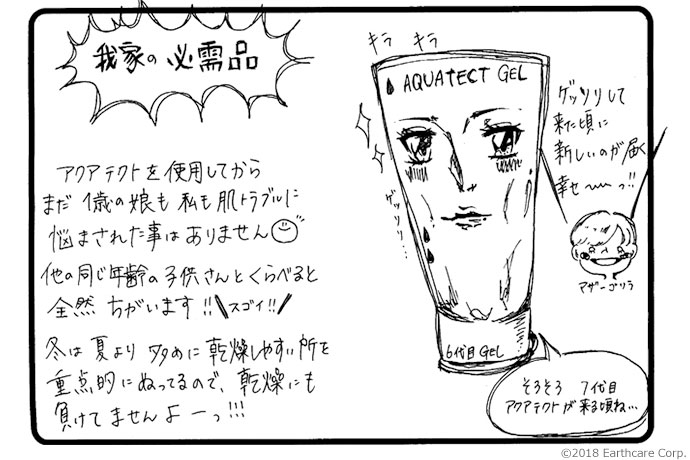 我家の必需品
アクアテクトを使用してから
まだ1歳の娘も私も肌トラブルに
悩まされた事はありません
他の同じ年齢の子供さんとくらべると
全然ちがいます!!スゴイ!!
冬は夏より多めに乾燥しやすい所を
重点的にぬってるので、乾燥にも
負けてませんよーっ!!!
キラ キラ
AQUATECT GEL
ゲッソリ…
6代目GEL
ゲッソリして
来た頃に
新しいのが届く
幸せ〜〜っ!!
マザーゴリラ
そろそろ 7代目
アクアテクトが来る頃ね…
©2018 Earthcare Corp.